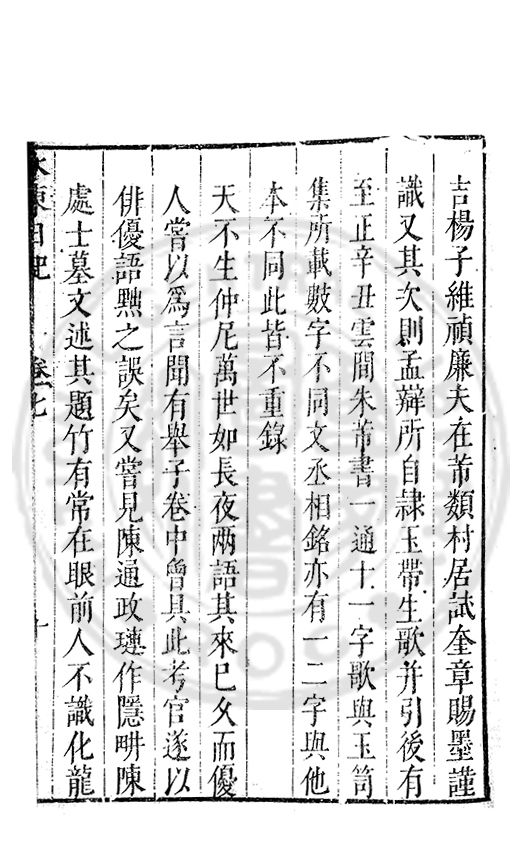 吉楊子維禎廉夫在芾類村居試奎章賜墨謹
識又其次則孟辯所自隷玉帶生歌并引後有
至正辛丑雲間朱芾書一通十一字歌與玉笥
集所載數字不同文丞相銘亦有一二字與他
本不同此皆不重錄
天不生仲尼萬世如長夜兩語其來已久而優
人嘗以爲言聞有舉子卷中曾具此考官遂以
俳優語黜之誤矣又嘗見陳通政璉作隱畊陳
處士墓文述其題竹有常在眼前人不識化龍
水東日記 卷七 十